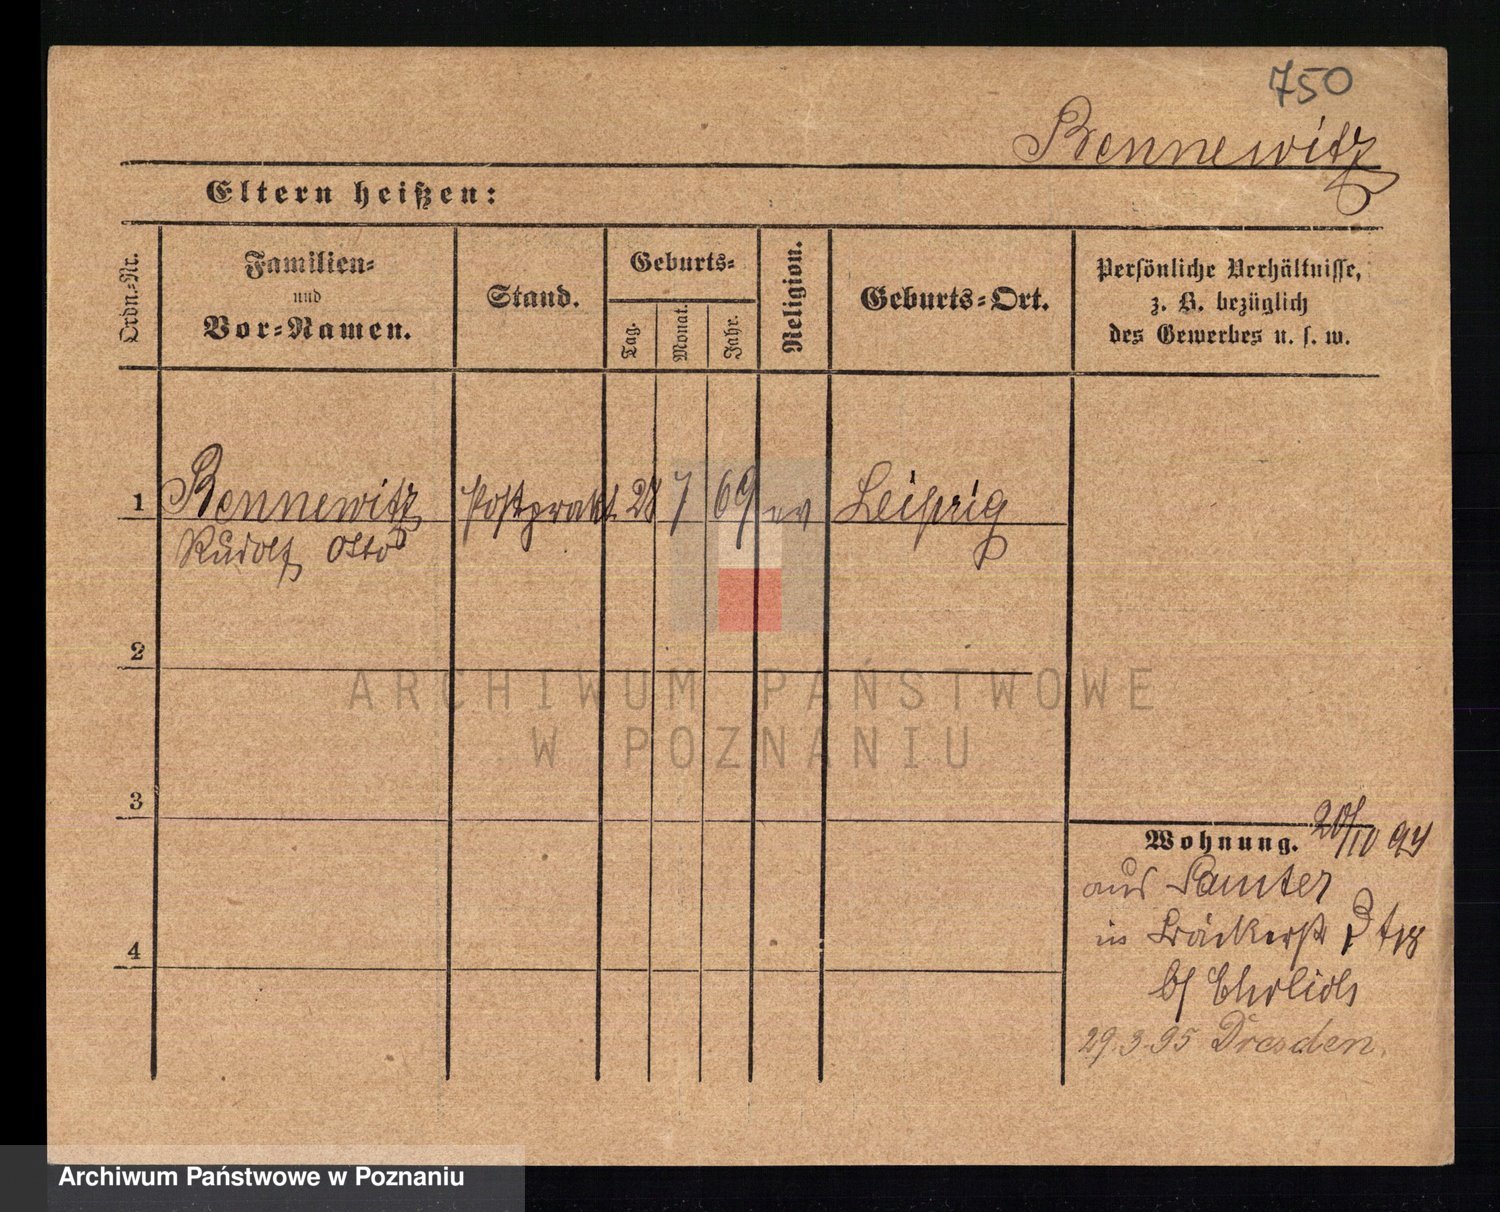 750
Bennewitz
Eltern heißen:
Ordn.-Nr.
Familien-
und
Vor-Namen.
Stand.
Geburts-
Tag.
Monat.
Jahr.
Religion.
Geburts-Ort.
Persönliche Verhältnisse,
z. B. bezüglich
des Gewerbes u. s. w.
1
Bennewitz Postprakt. 28 7 69 ev Leipzig
Rudolf Otto
2
ARCHIWUM PAŃSTWOWE
W POZNANIU
3
Wohnung. 20/10 94
aus Samter
in Bäckerstr
b/ Ehrlich
4
29.3.95 Dresden.
Archiwum Państwowe w Poznaniu